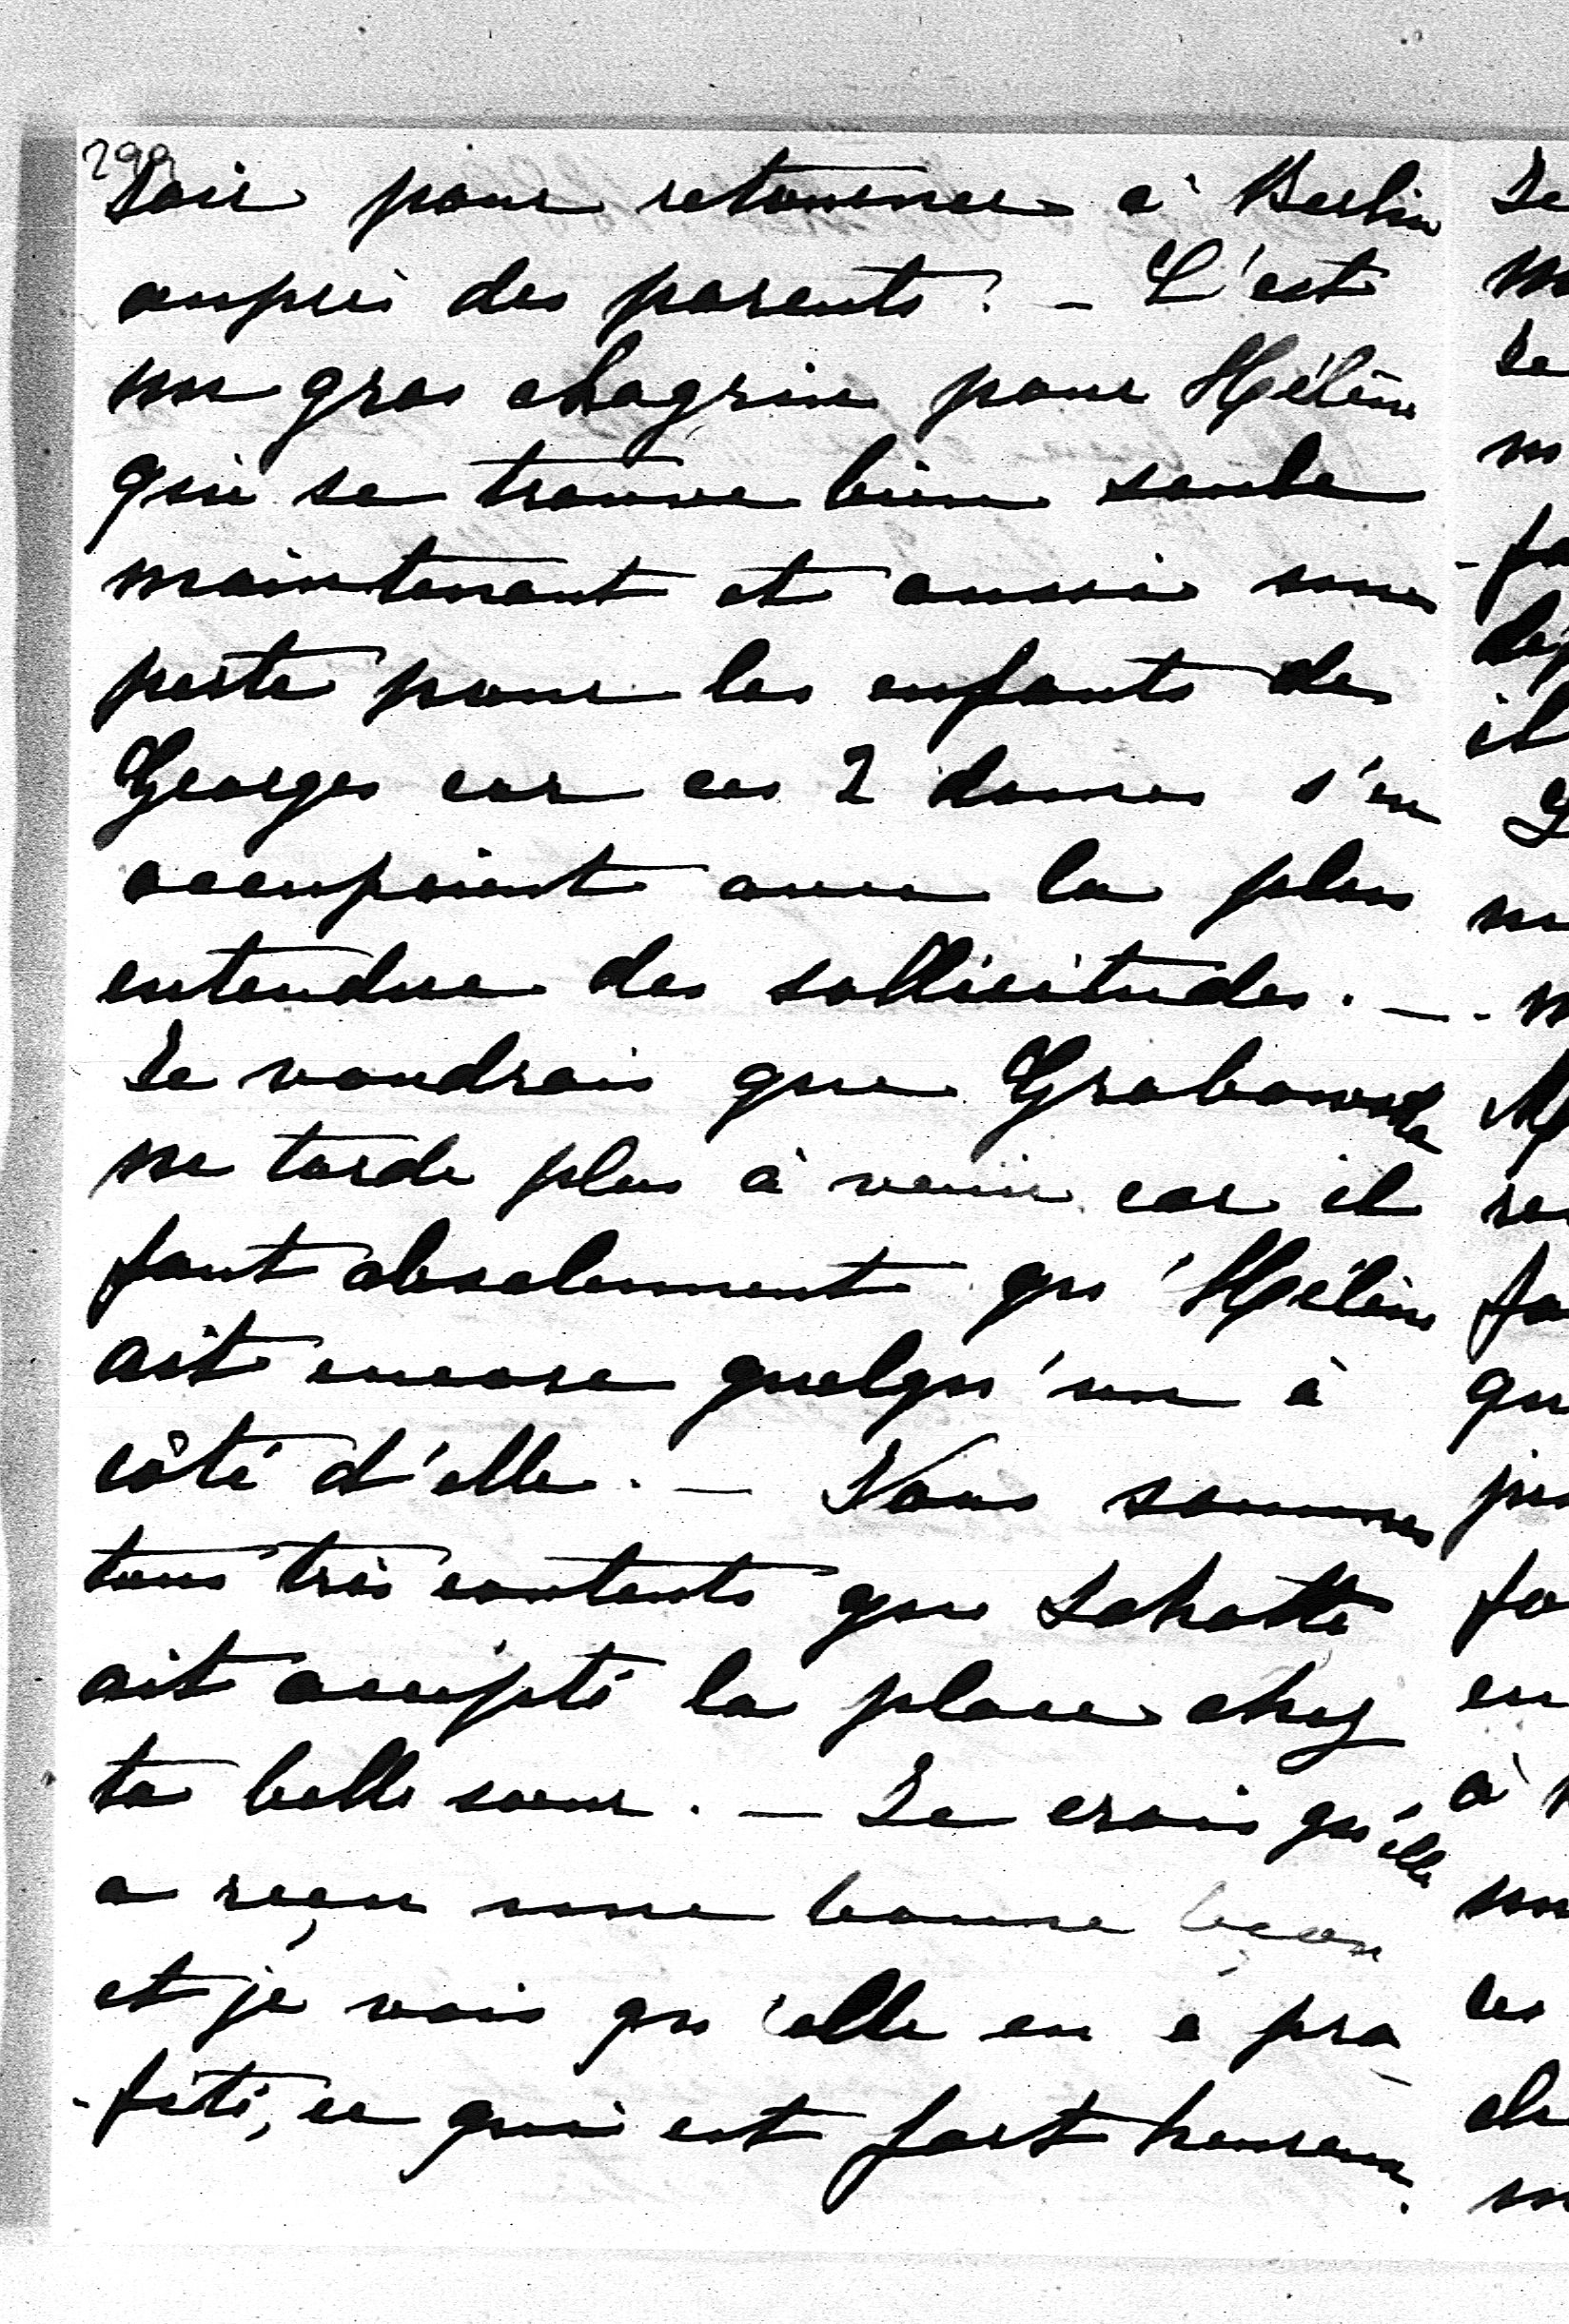 299
soir pour retourner à Berlin
auprès des parents. – C'est
un gros chagrin pour Hélène
qui se trouve bien seule
maintenant et aussi une
perte pour les enfants de
Georges car ces 2 dames s'en
occupaient avec la plus
entendue des sollicitudes. –
Je voudrais que Grabowska
ne tarde plus à venir car il
faut absolument qu'Hélène
ait encore quelqu'un à
côté d'elle. – Nous sommes
tous très contents que Schotte
ait accepté la place chez
ta belle sœur. – Je crois qu'elle
a reçu une bonne leçon
et je vois qu'elle en a pro-
-fité, ce qui est fort heureux.